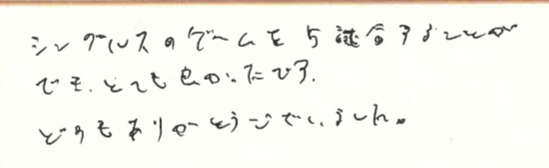 シングルスのゲームを5試合することが
でき、とても良かったです。
どうもありがとうございました。